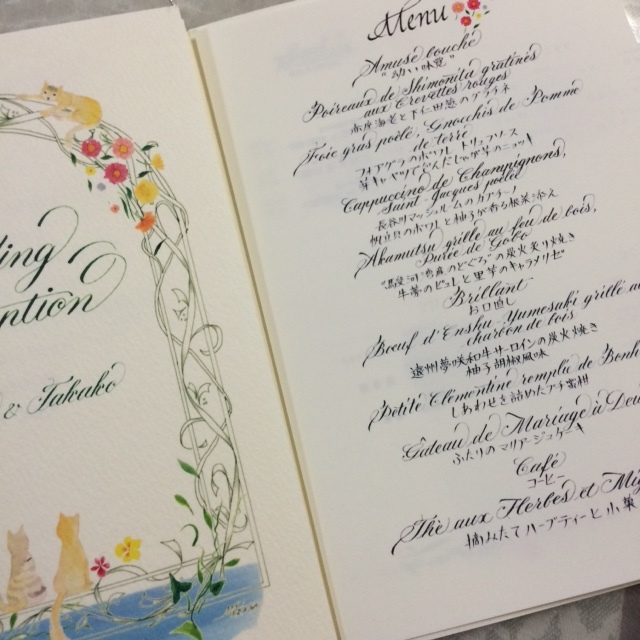 ing
ption
& Takako
Menu
Amuse bouche
"幼い味覚"
Poireaux de Shimonita gratinés
aux Crevettes rouges
赤座海老と下仁田葱のグラチネ
Foie gras poêlé, Gnocchis de Pomme
de terre
フォアグラのポワレ トリュフソース
Cappuccino de Champignons,
Saint-Jacques poêlé
長谷川マッシュルームのカプチーノ
帆立貝のポワレと柚子が香る根菜添え
Akamutsu grillé au feu de bois,
Purée de Gobo
炭火炙り焼き
牛蒡のピュレと里芋のキャラメリゼ
Brillant
お口直し
Boeuf d'Enshu-Yumesaki grillé au
charbon de bois
遠州夢咲和牛サーロインの炭火焼き
柚子胡椒風味
Petite Clémentine remplie de Bonh
しあわせを詰めたプチ蜜柑
Gâteau de Mariage à Deu
ふたりのマリアージュケーキ
Café
コーヒー
Thé aux Herbes et Mig
摘みたてハーブティーと小菓